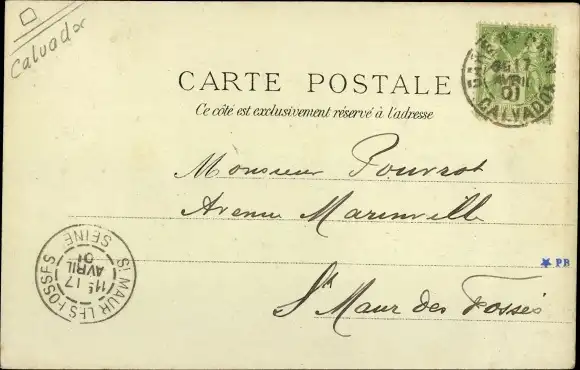 Calvados
CARTE POSTALE
Ce côté est exclusivement réservé à l'adresse
GARE DE CAEN
17
AVRIL
01
CALVADOS
Monsieur
Avenue Marinville
St Maur des Fossés
PB
ST MAUR LES FOSSES
11E 17
AVRIL
01
SEINE